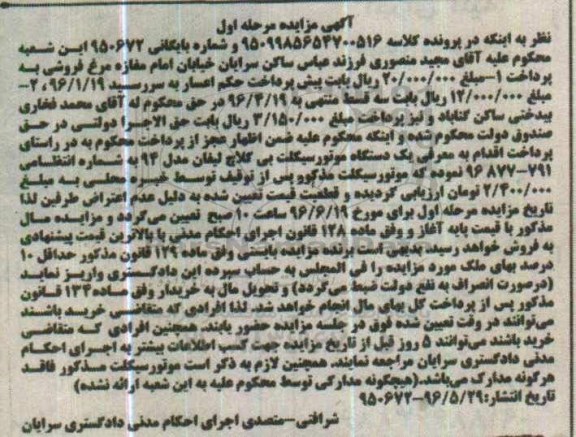 آگهی مزایده مرحله اول
نظر به اینکه در پرونده کلاسه ۹۵۰۹۹۸۵۶۵۴۷۰۰۵۱۶ و شماره بایگانی ۹۵۰۶۷۲ این شعبه
محکوم علیه آقای مجید منصوری فرزند عباس ساکن سرایان خیابان امام مغازه مرغ فروشی به
پرداخت ۱-مبلغ ۲۰/۰۰۰/۰۰۰ ریال بابت پیش پرداخت حکم اعسار به سررسید ۹۶/۱/۱۹ ۲-
مبلغ ۱۲/۰۰۰/۰۰۰ ریال بابت سه قسط منتهی به ۹۶/۳/۱۹ در حق محکوم له آقای محمد فخاری
بیدختی ساکن گناباد و نیز پرداخت مبلغ ۳/۱۵۰/۰۰۰ ریال بابت حق الاجرا دولتی در حق
صندوق دولت محکوم شده و اینکه محکوم علیه ضمن اظهار عجز از پرداخت محکوم به در راستای
پرداخت اقدام به معرفی یک دستگاه موتورسیکلت بی کلاچ لیفان مدل ۹۴ به شماره انتظامی
۷۹۱-۹۶۸۷۷ نموده که موتورسیکلت مذکور پس از توقیف توسط خبره محلی به مبلغ
۲/۳۰۰/۰۰۰ تومان ارزیابی گردیده و قطعیت قیمت تعیین شده به دلیل عدم اعتراض طرفین لذا
تاریخ مزایده مرحله اول برای مورخ ۹۶/۶/۱۹ ساعت ۱۰ صبح تعیین می‌گردد و مزایده مال
مذکور با قیمت پایه آغاز و وفق ماده ۱۲۸ قانون اجرای احکام مدنی با بالاترین قیمت پیشنهادی
به فروش خواهد رسید، بدیهی است برنده مزایده، بایستی وفق ماده ۱۲۹ قانون مذکور حداقل ۱۰
درصد بهای ملک مورد مزایده را فی المجلس به حساب سپرده این دادگستری واریز نماید
(درصورت انصراف به نفع دولت ضبط می‌گردد) و تحویل مال به خریدار وفق ماده ۱۳۴ قانون
مذکور پس از پرداخت کل بهای مال انجام خواهد شد. لذا افرادی که متقاضی خرید باشند
می‌توانند در وقت تعیین شده فوق در جلسه مزایده حضور یابند. همچنین افرادی که متقاضی
خرید باشند می‌توانند ۵ روز قبل از تاریخ مزایده جهت کسب اطلاعات بیشتر به اجرای احکام
مدنی دادگستری سرایان مراجعه نمایند. همچنین لازم به ذکر است موتورسیکلت مذکور فاقد
هرگونه مدارک می‌باشد.(هیچگونه مدارکی توسط محکوم علیه به این شعبه ارائه نشده)
تاریخ انتشار:۹۶/۵/۲۹-۹۵۰۶۷۲
شرافتی-متصدی اجرای احکام مدنی دادگستری سرایان